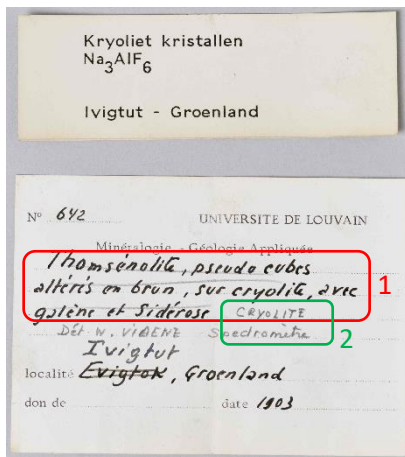 Kryoliet kristallen
Na3AlF6
Ivigtut - Groenland
N° 642 UNIVERSITE DE LOUVAIN
Minéralogie - Géologie Appliquée
Thomsénolite, pseudo cubes
altérés en brun, sur cryolite, avec
galène et Sidérose CRYOLITE
Dét. W. VIAENE Spectromètre
Ivigtut
localité Evigtok, Groenland
don de date 1903
1
2